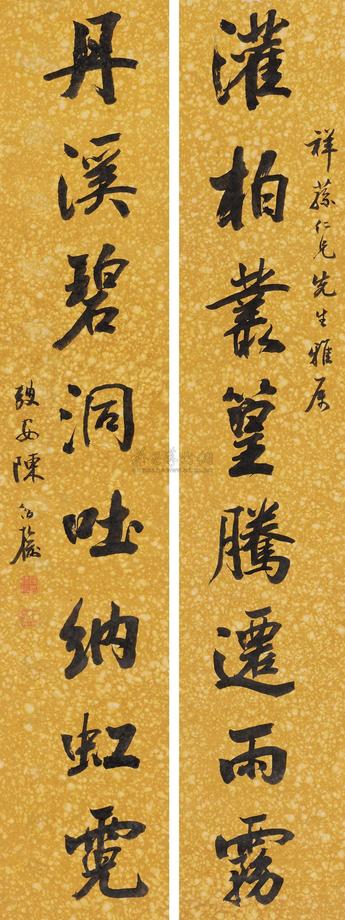 祥蓀仁兄先生雅屬
灌柏叢篁騰遷雨霧
丹溪碧洞吐納虹霓
陳